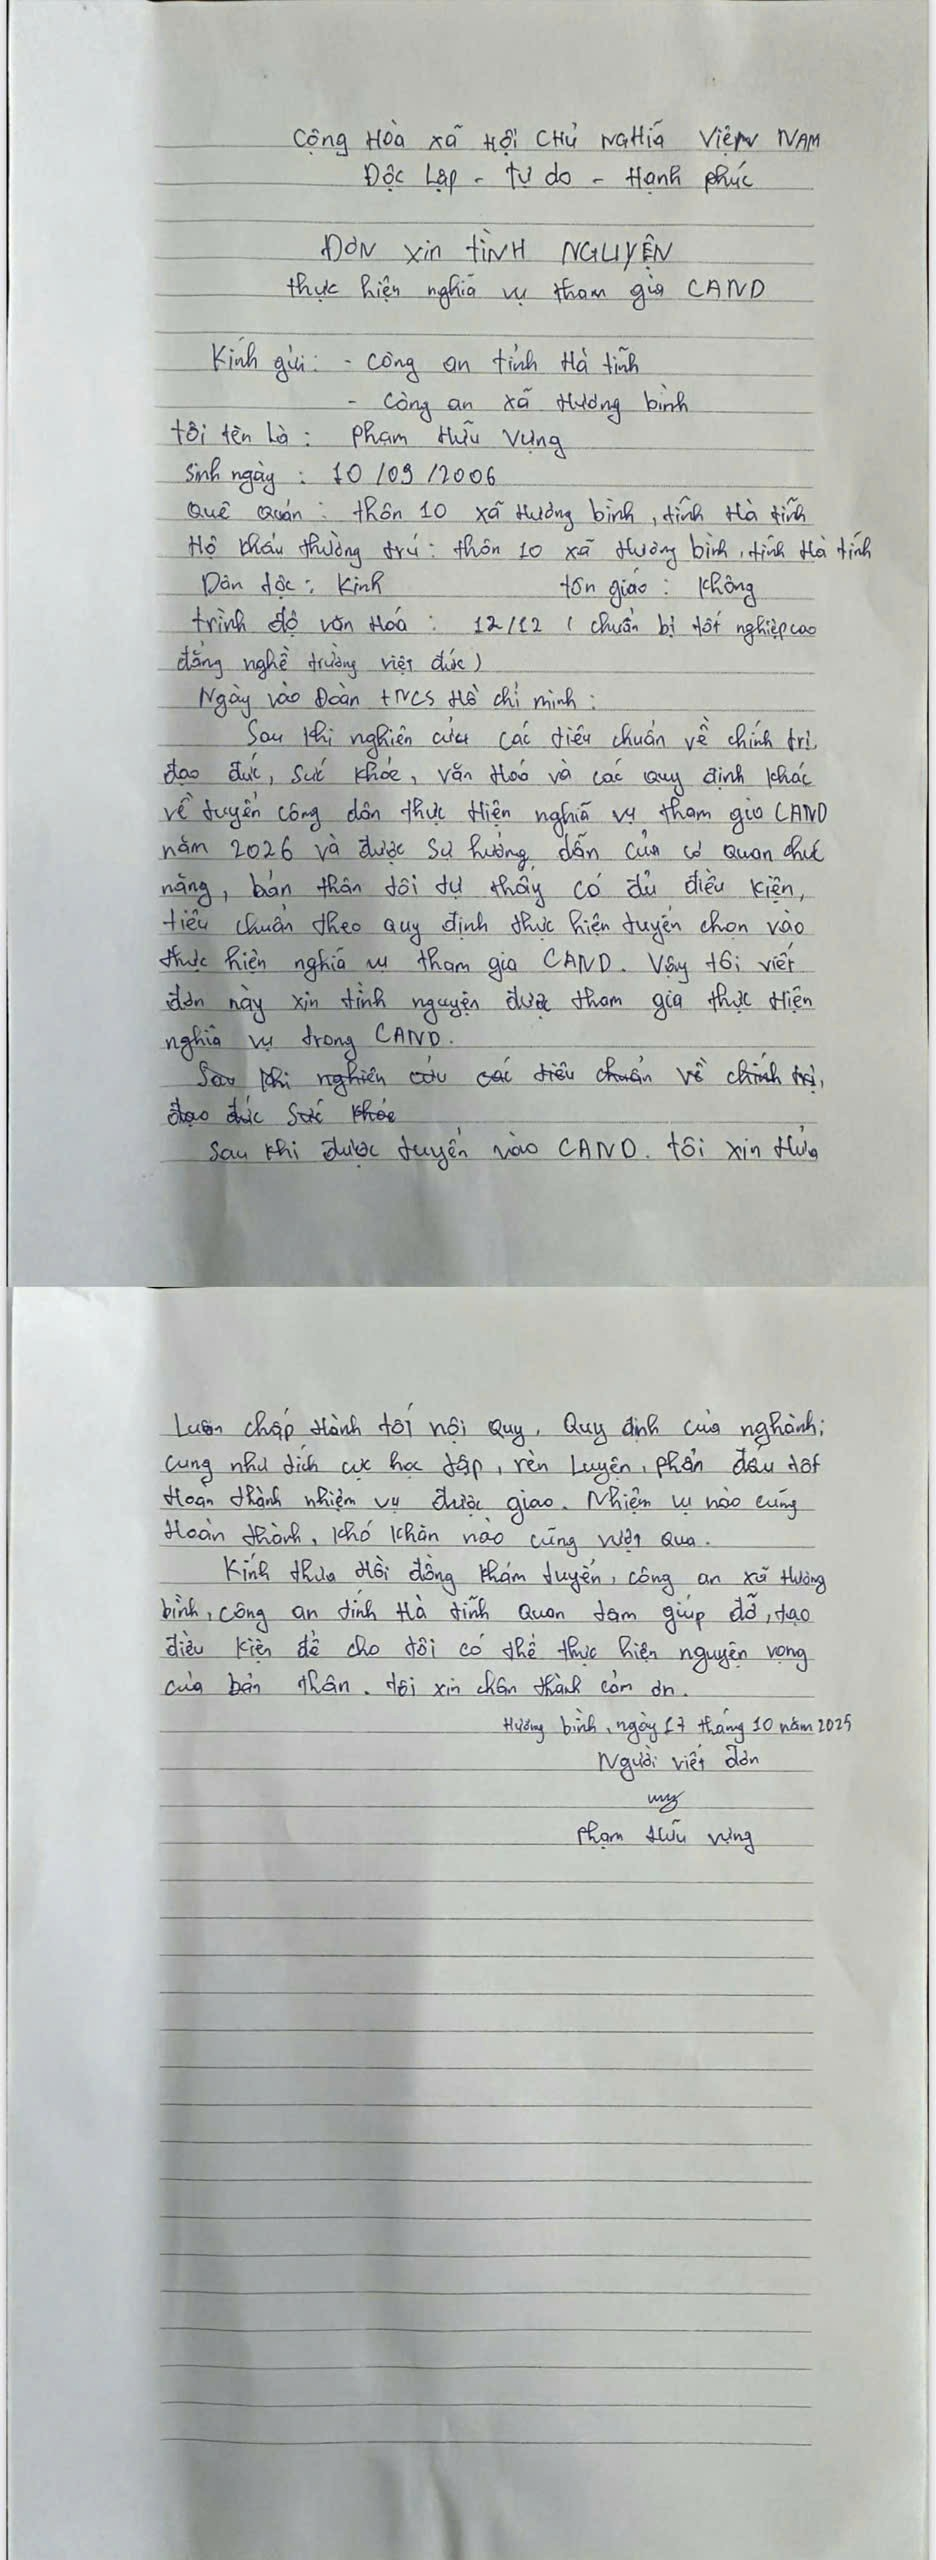 Cộng Hòa xã Hội CHủ NGHĩa Việt NAM
Độc Lập - Tự do - Hạnh phúc
ĐƠN xin tÌNH NGUYỆN
thực hiện nghĩa vụ tham gia CAND
Kính gửi: - Công an tỉnh Hà tĩnh
- Công an xã Hương bình
tôi tên là : Phạm Hữu Vựng
Sinh ngày : 10/09/2006
Quê Quán : thôn 10 xã Hương bình, tỉnh Hà tĩnh
Hộ khẩu thường trú : thôn 10 xã Hương bình, tỉnh Hà tĩnh
Dân tộc : Kinh tôn giáo : Không
trình độ văn Hoá : 12/12 ( chuẩn bị tốt nghiệp cao
đẳng nghề trường việt đức)
Ngày vào Đoàn TNCS Hồ chí minh :
Sau Khi nghiên cứu các tiêu chuẩn về chính trị,
đạo đức, sức khỏe, văn Hoá và các quy định khác
về tuyển công dân thực Hiện nghĩa vụ tham gia CAND
năm 2026 và được sự hướng dẫn của cơ quan chức
năng, bản thân tôi tự thấy có đủ điều kiện,
tiêu chuẩn theo quy định thực hiện tuyển chọn vào
thực hiện nghĩa vụ tham gia CAND. Vậy tôi viết
đơn này xin tình nguyện được tham gia thực Hiện
nghĩa vụ trong CAND.
Sau khi nghiên cứu các tiêu chuẩn về chính trị,
đạo đức sức khỏe
Sau khi được tuyển vào CAND. tôi xin Hứa
Luôn chấp Hành tốt nội Quy, Quy định của nghành;
cung như tích cực học tập, rèn Luyện, phấn đấu tốt
Hoàn thành nhiệm vụ được giao. Nhiệm vụ nào cũng
Hoàn thành, khó khăn nào cũng vượt qua.
Kính thưa Hội đồng khám tuyển, công an xã Hương
bình, công an tỉnh Hà tĩnh Quan tâm giúp đỡ, tạo
điều kiện để cho tôi có thể thực hiện nguyện vọng
của bản thân. tôi xin chân thành cảm ơn.
Hương bình, ngày 17 tháng 10 năm 2025
Người viết đơn
Phạm Hữu Vựng